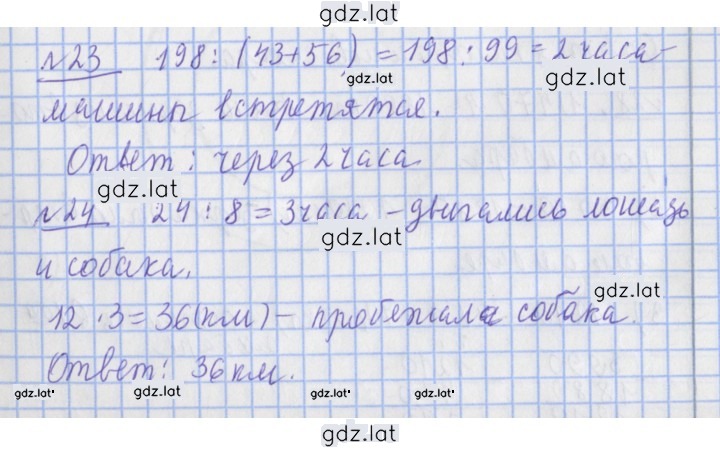 gdz.lat
№23 198 : (43+56) = 198 : 99 = 2 часа -
gdz.lat gdz.lat
машины встретятся.
Ответ : через 2 часа.
gdz.lat
№24 24 : 8 = 3 часа - двигались лошадь
gdz.lat
и собака.
gdz.lat
12 · 3 = 36 (км) - пробежала собака.
Ответ: 36 км.
gdz.lat gdz.lat gdz.lat gdz.lat gdz.lat
gdz.lat